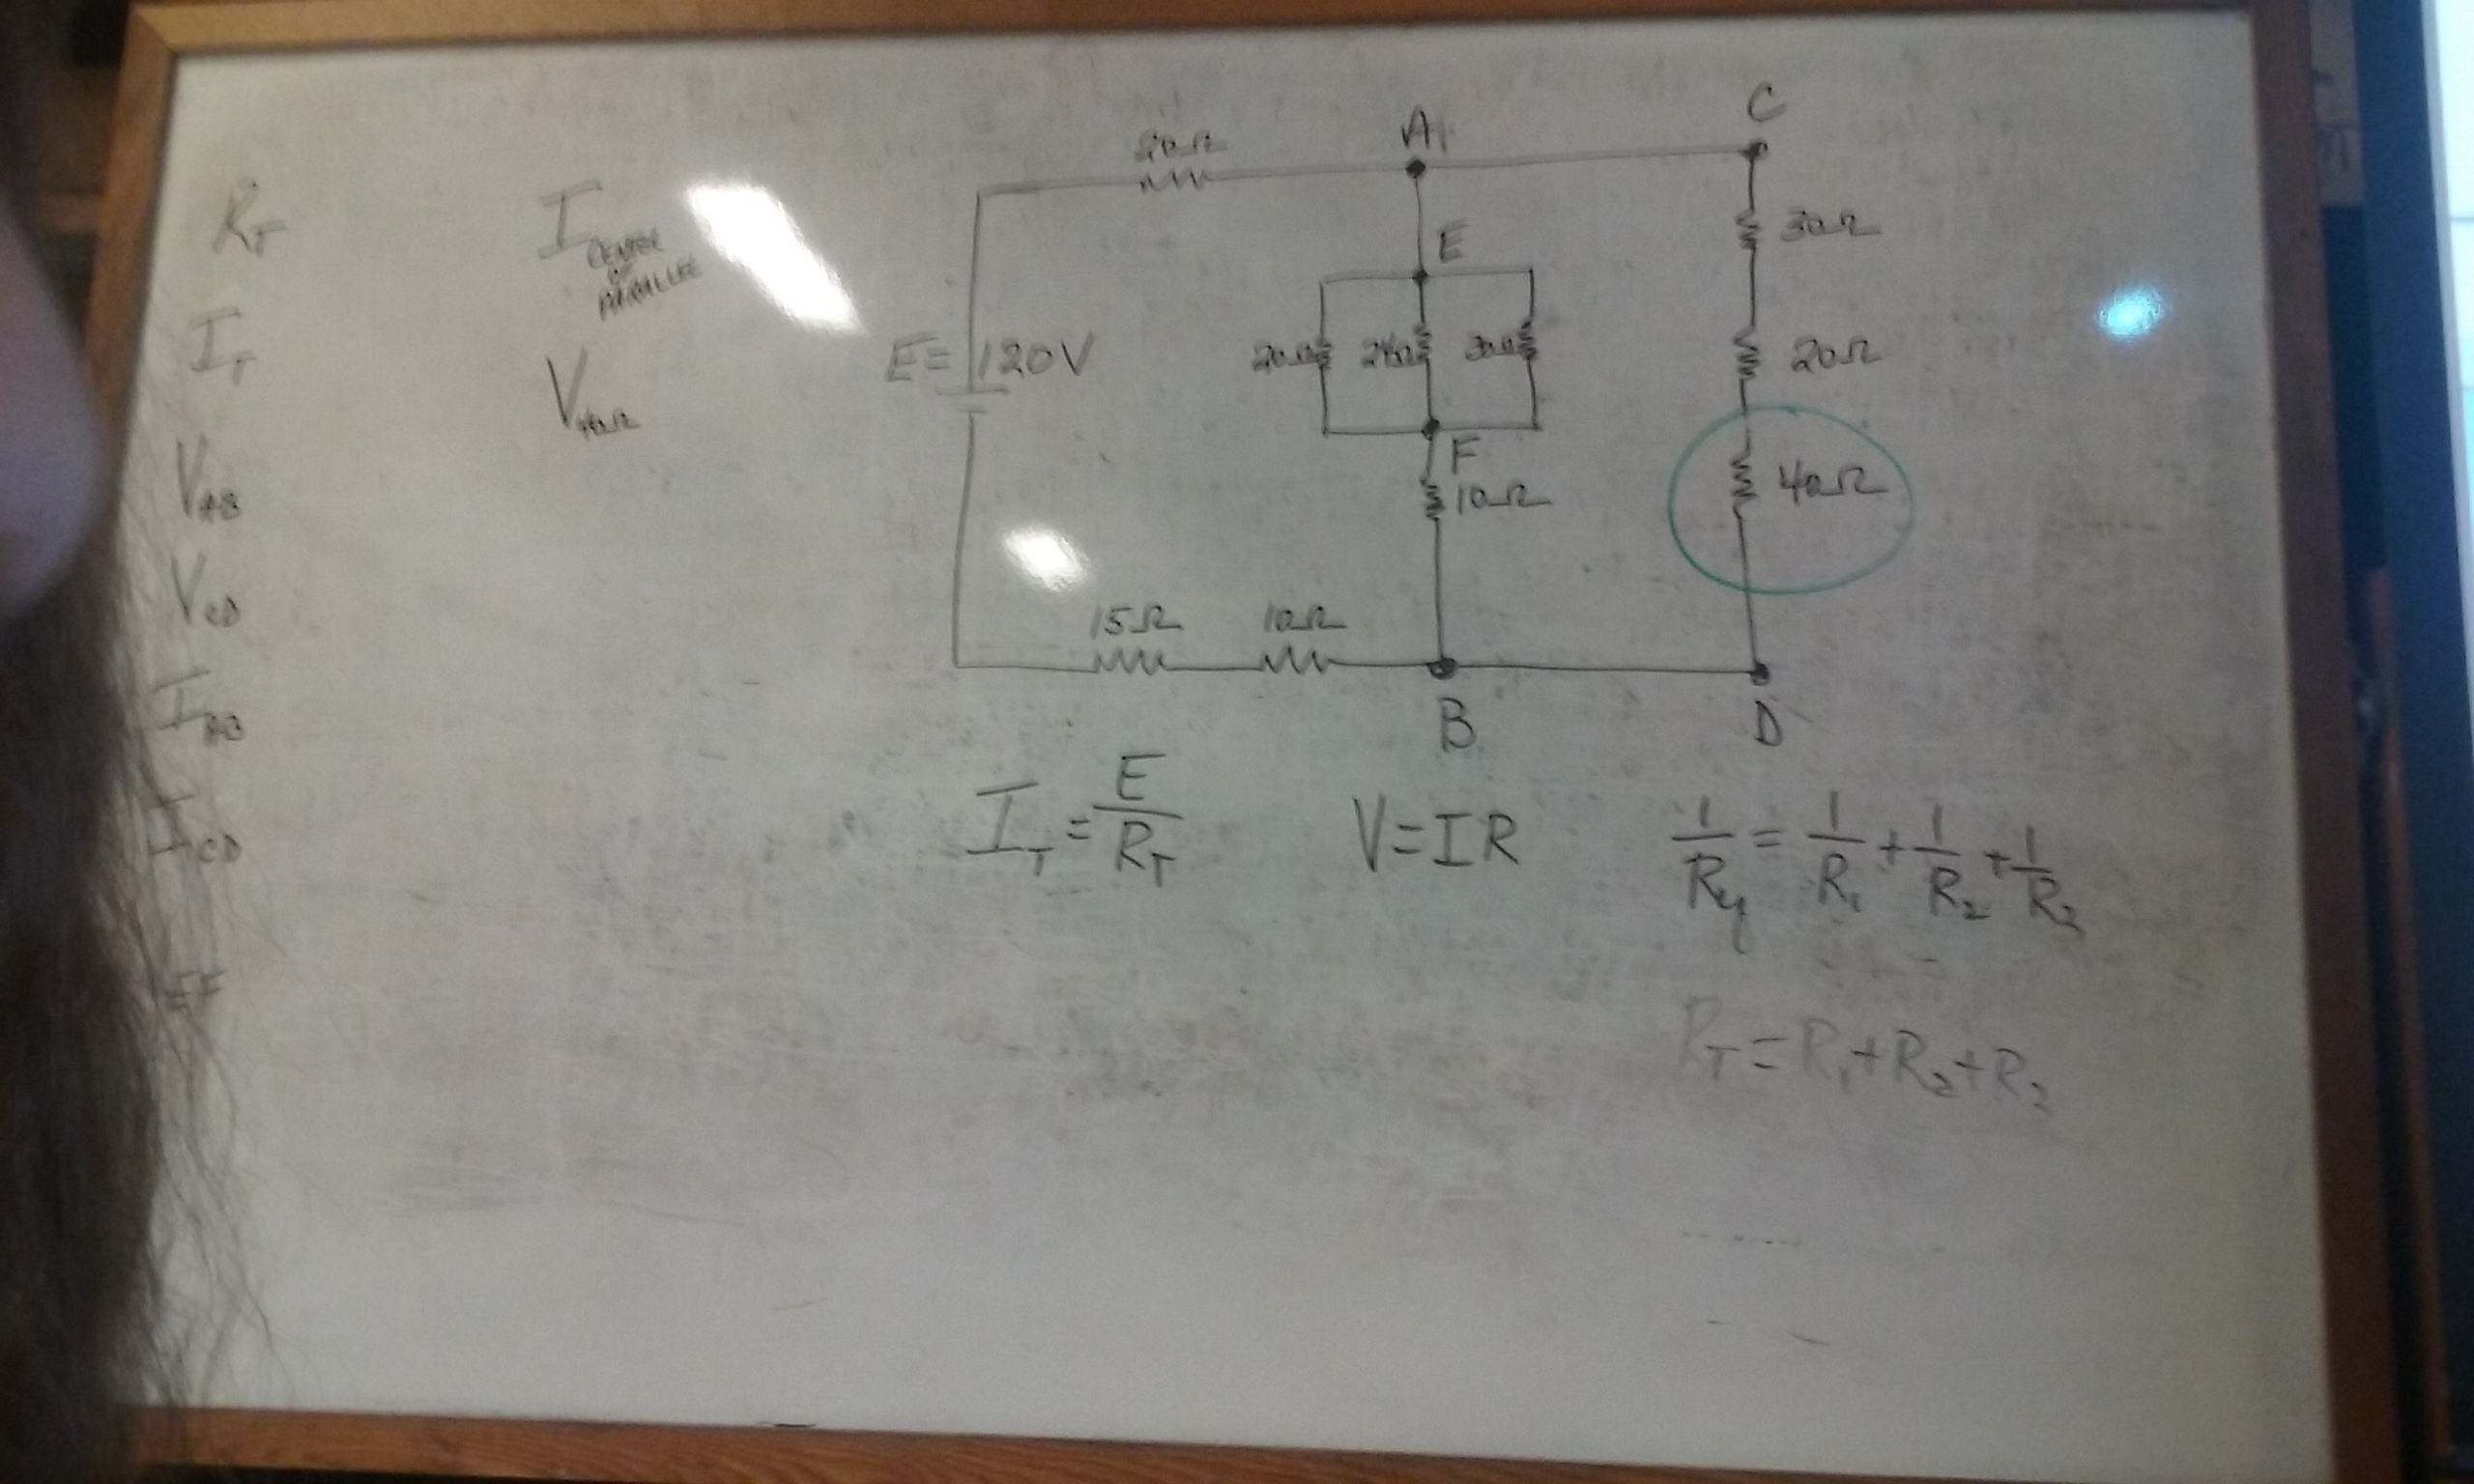 R_T
I_T
V_AB
V_CD
I_AB
I_CD
EF
I CENTER OF PARALLEL
V_40Ω
20Ω
A
C
E
30Ω
E= 120V
20Ω 24Ω 30Ω
20Ω
F
10Ω
40Ω
15Ω 10Ω
B
D
I_T = E/R_T
V=IR
1/R_eq = 1/R_1 + 1/R_2 + 1/R_3
R_T = R_1 + R_2 + R_3